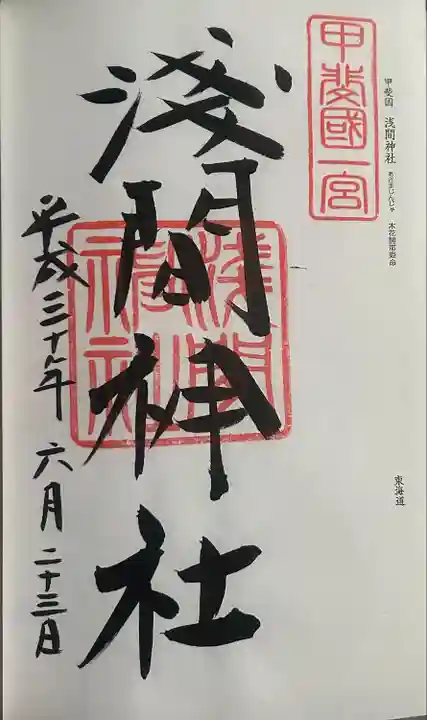 甲斐国 浅間神社 あさまじんじゃ 木花開耶姫命
東海道
甲斐國一宮
淺間神社
淺間神社
平成三十年 六月 二十三日